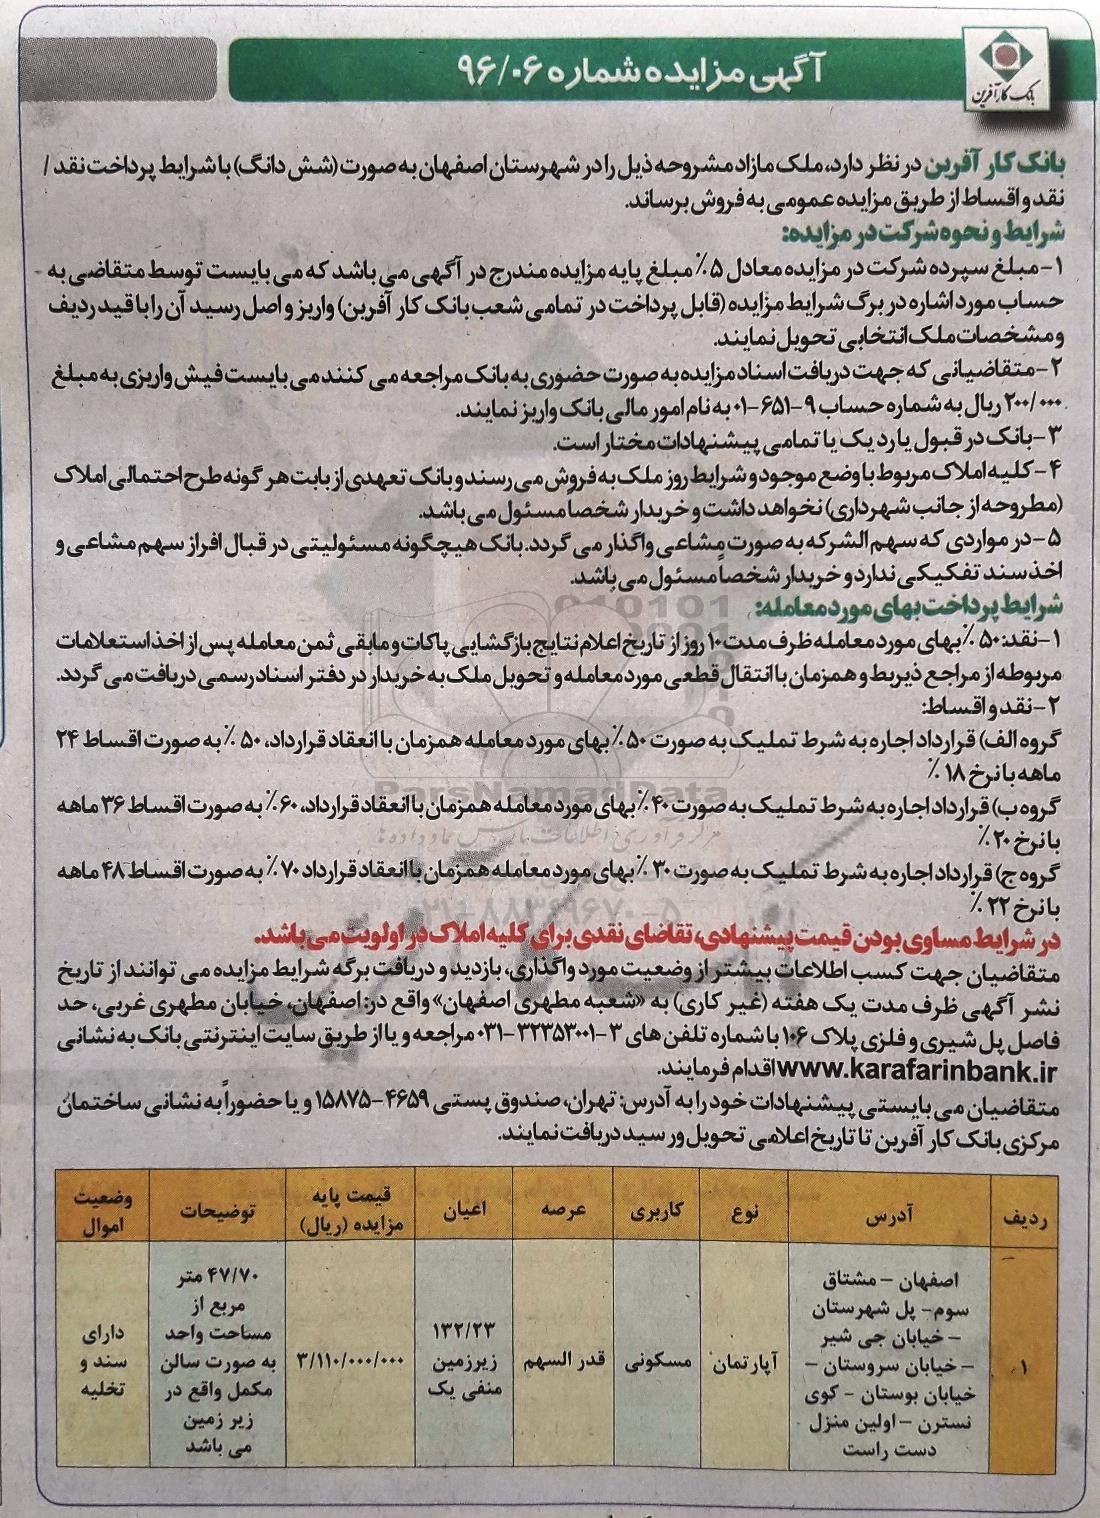 آگهی مزایده شماره ۹۶/۰۶
بانک کارآفرین
بانک کار آفرین در نظر دارد، ملک مازاد مشروحه ذیل را در شهرستان اصفهان به صورت (شش دانگ) با شرایط پرداخت نقد /
نقد و اقساط از طریق مزایده عمومی به فروش برساند.
شرایط و نحوه شرکت در مزایده:
۱-مبلغ سپرده شرکت در مزایده معادل ۵٪ مبلغ پایه مزایده مندرج در آگهی می باشد که می بایست توسط متقاضی به
حساب مورد اشاره در برگ شرایط مزایده (قابل پرداخت در تمامی شعب بانک کار آفرین) واریز و اصل رسید آن را با قید ردیف
و مشخصات ملک انتخابی تحویل نمایند.
۲-متقاضیانی که جهت دریافت اسناد مزایده به صورت حضوری به بانک مراجعه می کنند می بایست فیش واریزی به مبلغ
۲۰۰/۰۰۰ ریال به شماره حساب ۹-۶۵۱-۰۱ به نام امور مالی بانک واریز نمایند.
۳-بانک در قبول یا رد یک یا تمامی پیشنهادات مختار است.
۴-کلیه املاک مربوط با وضع موجود و شرایط روز ملک به فروش می رسند و بانک تعهدی از بابت هر گونه طرح احتمالی املاک
(مطروحه از جانب شهرداری) نخواهد داشت و خریدار شخصاً مسئول می باشد.
۵-در مواردی که سهم الشرکه به صورت مشاعی واگذار می گردد. بانک هیچگونه مسئولیتی در قبال افراز سهم مشاعی و
اخذ سند تفکیکی ندارد و خریدار شخصاً مسئول می باشد.
شرایط پرداخت بهای مورد معامله:
۱-نقد: ۵۰٪ بهای مورد معامله ظرف مدت ۱۰ روز از تاریخ اعلام نتایج بازگشایی پاکات و مابقی ثمن معامله پس از اخذ استعلامات
مربوطه از مراجع ذیربط و همزمان با انتقال قطعی مورد معامله و تحویل ملک به خریدار در دفتر اسناد رسمی دریافت می گردد.
۲-نقد و اقساط:
گروه الف) قرارداد اجاره به شرط تملیک به صورت ۵۰٪ بهای مورد معامله همزمان با انعقاد قرارداد، ۵۰٪ به صورت اقساط ۲۴
ماهه با نرخ ۱۸٪
گروه ب) قرارداد اجاره به شرط تملیک به صورت ۴۰٪ بهای مورد معامله همزمان با انعقاد قرارداد، ۶۰٪ به صورت اقساط ۳۶ ماهه
با نرخ ۲۰٪
گروه ج) قرارداد اجاره به شرط تملیک به صورت ۳۰٪ بهای مورد معامله همزمان با انعقاد قرارداد ۷۰٪ به صورت اقساط ۴۸ ماهه
با نرخ ۲۲٪
در شرایط مساوی بودن قیمت پیشنهادی، تقاضای نقدی برای کلیه املاک در اولویت می باشد.
متقاضیان جهت کسب اطلاعات بیشتر از وضعیت مورد واگذاری، بازدید و دریافت برگه شرایط مزایده می توانند از تاریخ
نشر آگهی ظرف مدت یک هفته (غیر کاری) به «شعبه مطهری اصفهان» واقع در: اصفهان، خیابان مطهری غربی، حد
فاصل پل شیری و فلزی پلاک ۱۰۶ با شماره تلفن های ۳-۳۲۳۵۳۰۰۱-۰۳۱ مراجعه و یا از طریق سایت اینترنتی بانک به نشانی
www.karafarinbank.ir اقدام فرمایند.
متقاضیان می بایستی پیشنهادات خود را به آدرس: تهران، صندوق پستی ۴۶۵۹-۱۵۸۷۵ و یا حضوراً به نشانی ساختمان
مرکزی بانک کار آفرین تا تاریخ اعلامی تحویل و رسید دریافت نمایند.
ردیف آدرس نوع کاربری عرصه اعیان قیمت پایه مزایده (ریال) توضیحات وضعیت اموال
۱
اصفهان – مشتاق
سوم- پل شهرستان
– خیابان جی شیر
– خیابان سروستان –
خیابان بوستان – کوی
نسترن – اولین منزل
دست راست
آپارتمان
مسکونی
قدر السهم
۱۳۲/۲۳
زیرزمین
منفی یک
۳/۱۱۰/۰۰۰/۰۰۰
۴۷/۷۰ متر
مربع از
مساحت واحد
به صورت سالن
مکمل واقع در
زیر زمین
می باشد
دارای
سند و
تخلیه
ParsNamadData
۰۲۱-۸۸۳۴۹۶۷۰-۵